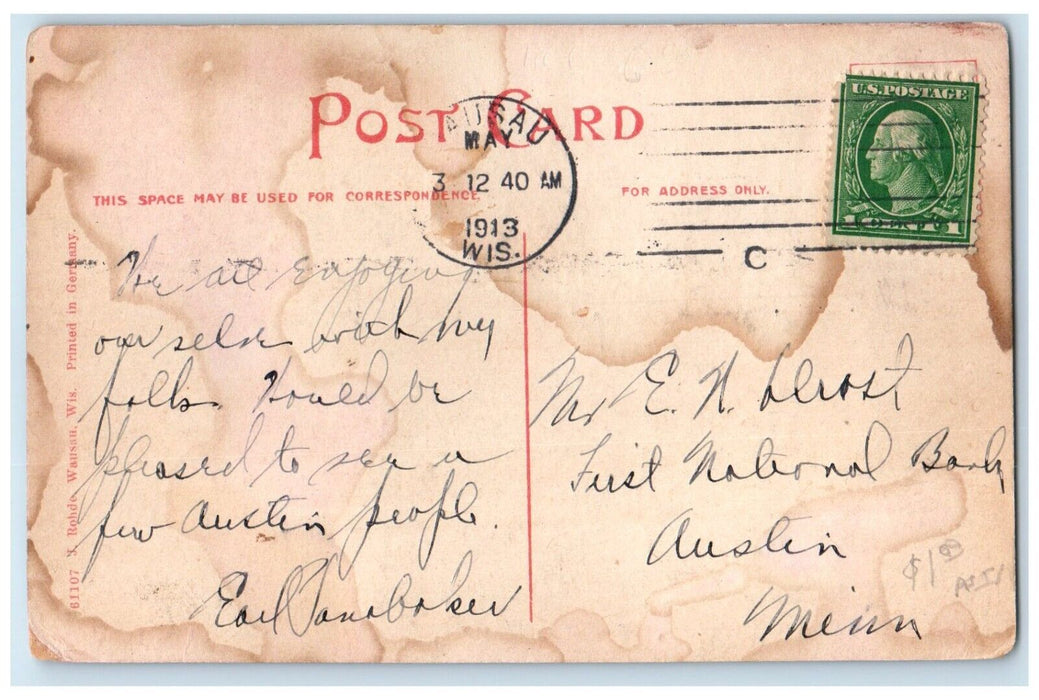 POST CARD
WAUSAU
MAY
3 12 40 AM
1913
WIS.
C
U.S. POSTAGE
THIS SPACE MAY BE USED FOR CORRESPONDENCE
FOR ADDRESS ONLY.
61107 J. Rohde, Wausau, Wis. Printed in Germany.
all enjoying
our selves with my
folks. Would be
pleased to see a
few Austin people.
Earl
Mr E. N.
First National Bank
Austin
Minn
$1